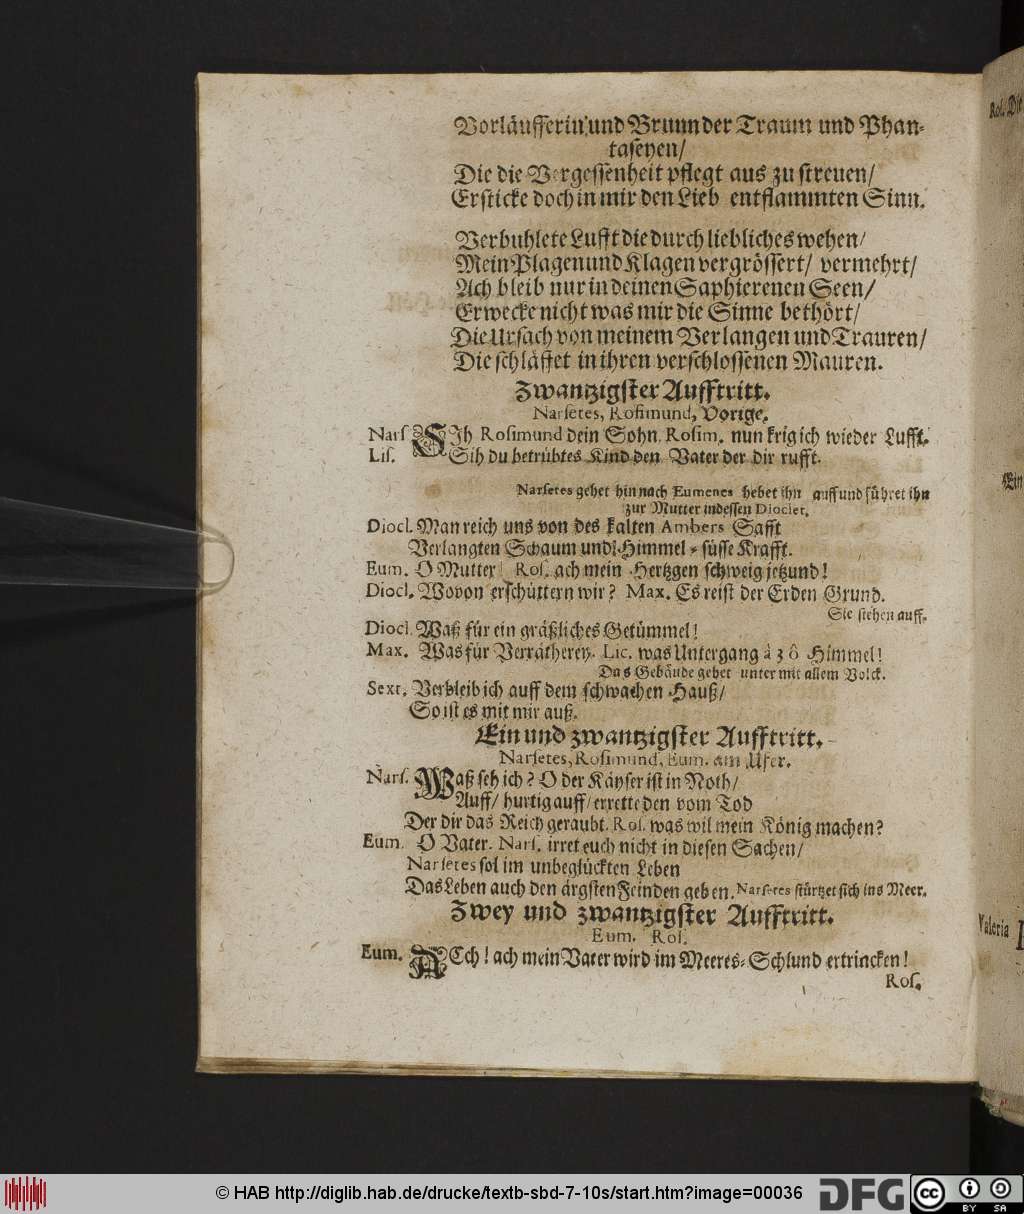 Vorläufferin und Brunn der Traum und Phan-
taseyen/
Die die Vergessenheit pflegt aus zu streuen/
Ersticke doch in mir den Lieb entflammten Sinn.
Verbuhlete Lufft die durch liebliches wehen/
Mein Plagen und Klagen vergrössert/ vermehrt/
Ach bleib nur in deinen Saphierenen Seen/
Erwecke nicht was mir die Sinne bethört/
Die Ursach von meinem Verlangen und Trauren/
Die schläffet in ihren verschlossenen Mauren.
Zwantzigster Aufftritt.
Narsetes, Rosimund, Vorige.
Nars SIh Rosimund dein Sohn. Rosim. nun krig ich wieder Lufft.
Lis. Sih du betrübtes Kind den Vater der dir rufft.
Narsetes gehet hin nach Eumenes hebet ihn auff und führet ihn
zur Mutter indessen Dioclet.
Diocl. Man reich uns von des kalten Ambers Safft
Verlangten Schaum und Himmel-süsse Krafft.
Eum. O Mutter! Ros. ach mein Hertzgen schweig jetzund!
Diocl. Wovon erschüttern wir? Max. Es reist der Erden Grund.
Sie stehen auff.
Diocl. Waß für ein gräßliches Getümmel!
Max. Was für Verrätherey. Lic. was Untergang à 3 ô Himmel!
Das Gebäude gehet unter mit allem Volck.
Sext. Verbleib ich auff dem schwachen Hauß/
So ist es mit mir auß.
Ein und zwantzigster Aufftritt.
Narsetes, Rosimund, Eum. am Ufer.
Nars. WAß seh ich? O der Käyser ist in Noth/
Auff/ hurtig auff/ errette den vom Tod
Der dir das Reich geraubt. Ros. was wil mein König machen?
Eum. O Vater. Nars. irret euch nicht in diesen Sachen/
Narsetes sol im unbeglückten Leben
Das Leben auch den ärgsten Feinden geben. Narsetes stürtzet sich ins Meer.
Zwey und zwantzigster Aufftritt.
Eum. Ros.
Eum. ACh! ach mein Vater wird im Meeres-Schlund ertrincken!
Ros.
Ros. Die
Ein
Valeria
© HAB http://diglib.hab.de/drucke/textb-sbd-7-10s/start.htm?image=00036
DFG
cc
BY SA